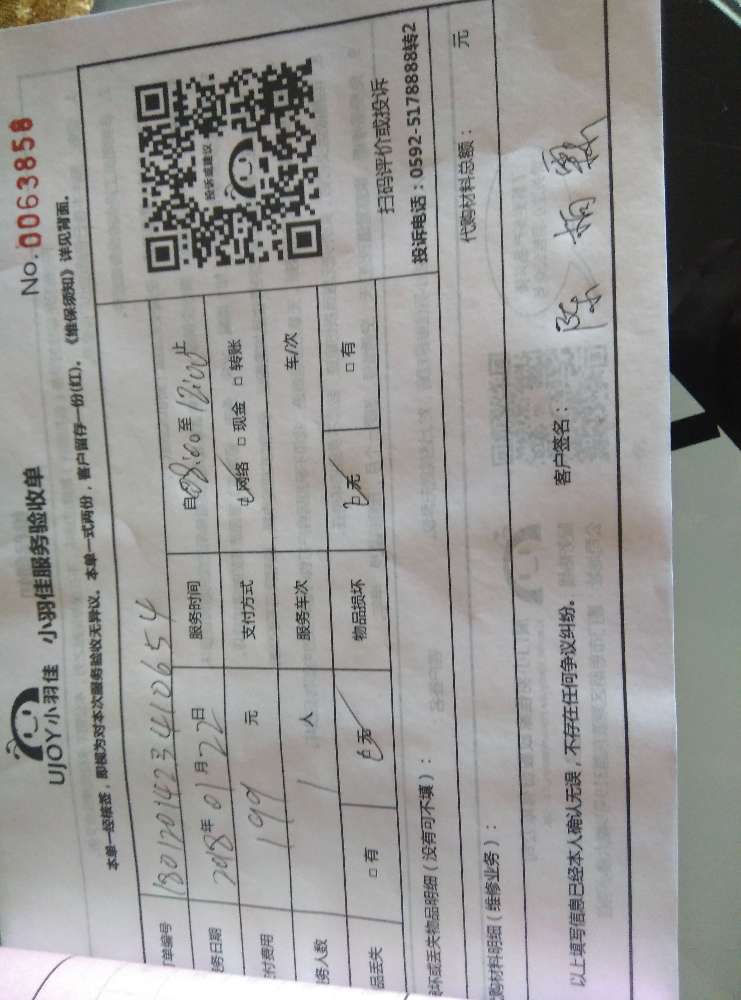 No. 0063858
UJOY小羽佳 小羽佳服务验收单
本单一经核签，即视为对本次服务验收无异议。本单一式两份，客户留存一份(红)。《维保须知》详见背面。
单编号 180120142341065４
务日期 2018年01月22日 服务时间 自08:00至12:00止
付费用 199 元 支付方式 网络 □ 现金 □ 转账
务人数 1 人 服务车次 车/次
品丢失 □ 有 无 物品损坏 无 □ 有
投诉或建议
扫码评价或投诉
投诉电话：0592-5178888转2
坏或丢失物品明细（没有可不填）：
购材料明细（维修业务）： 代购材料总额： 元
以上填写信息已经本人确认无误，不存在任何争议纠纷。 客户签名： 陈